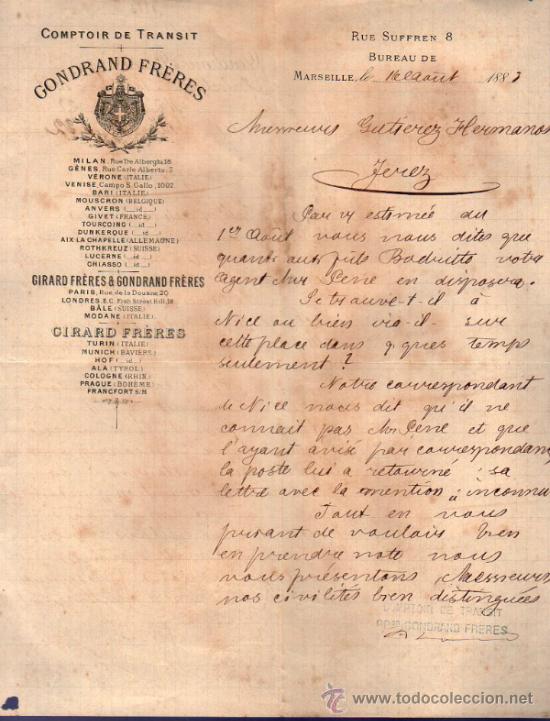 COMPTOIR DE TRANSIT
GONDRAND FRÈRES
MILAN, Rue Tre Alberghi, 16
GÊNES, Rue Carlo Alberto, 7
VÉRONE (ITALIE)
VENISE, Campo S. Gallo, 1092
BARI (ITALIE)
MOUSCRON (BELGIQUE)
ANVERS (__id__)
GIVET (FRANCE)
TOURCOING (__id__)
DUNKERQUE (__id__)
AIX LA CHAPELLE (ALLEMAGNE)
ROTHKREUZ (SUISSE)
LUCERNE (__id__)
CHIASSO (__id__)
GIRARD FRÈRES & GONDRAND FRÈRES
PARIS, Rue de la Douane, 20
LONDRES, E.C. Fish Street Hill, 18
BÂLE (SUISSE)
MODANE (ITALIE)
GIRARD FRÈRES
TURIN (ITALIE)
MUNICH (BAVIÈRE)
HOF (__id__)
ALA (TYROL)
COLOGNE (RHIN)
PRAGUE (BOHÊME)
FRANCFORT S/M
RUE SUFFREN 8
BUREAU DE
MARSEILLE, le 16 Août 188
Messieurs Gutierez Hermanos
Jerez
Par v/ estimée du
1er Août vous nous dites que
quant aux fûts votre
agent Mr Pène en disposera.
Se trouve-t-il à
Nice ou bien va-il sur
cette place dans q ques temps
seulement?
Notre correspondant
de Nice nous dit qu'il ne
connait pas Mr Pène et que
l'ayant avisé par correspondance
la poste lui a retourné sa
lettre avec la mention: inconnu
Tout en vous
priant de vouloir bien
en prendre note nous
vous présentons, Messieurs
nos civilités bien distinguées
COMPTOIR DE TRANSIT
GONDRAND FRÈRES
www.todocoleccion.net